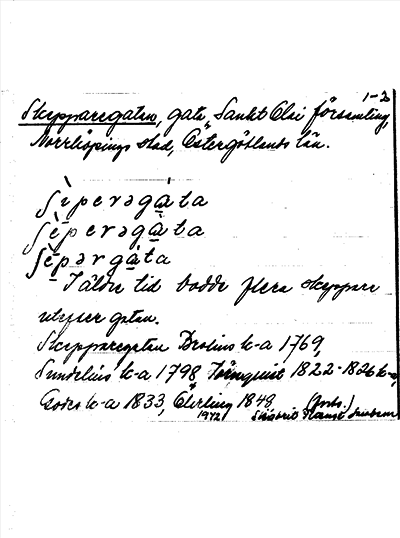 1-2
Skepparegatan, gata, Sankt Olai församling,
Norrköpings stad, Östergötlands län.
ʃìperəgàta
ʃèperəgàta
ʃèpərgàta
I äldre tid bodde flera skeppare
utmed gatan.
Skepparegatan Brolius k-a 1769,
Sundelius k-a 1798, Törnquist 1822-1826 k-a,
Godes k-a 1833, Ekerling 1848 (Ortb.)
1972